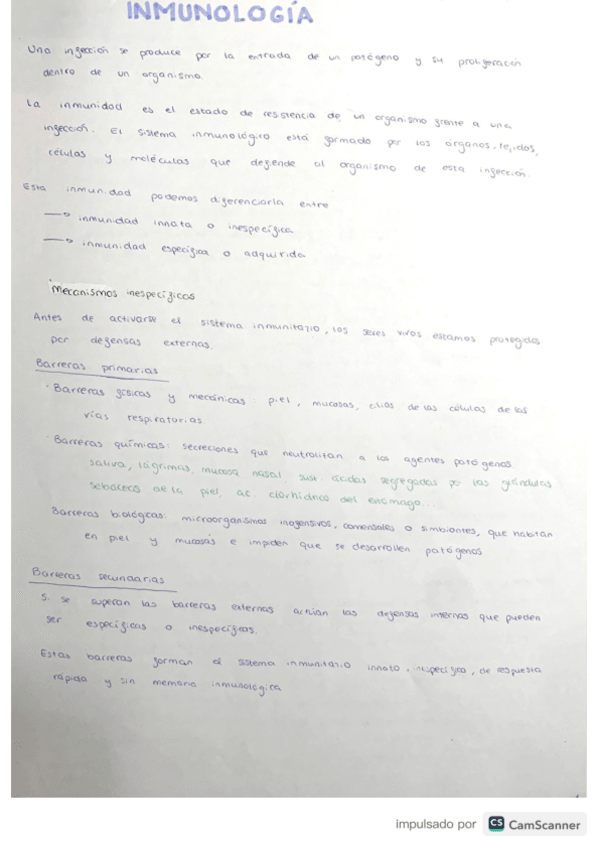 INMUNOLOGÍA
Una infección se produce por la entrada de un patógeno y su proliferación
dentro de un organismo.
La inmunidad es el estado de resistencia de un organismo frente a una
infección. El sistema inmunológico está formado por los órganos, tejidos,
células y moléculas que defiende al organismo de esta infección.
Esta inmunidad podemos diferenciarla entre
→ inmunidad innata o inespecífica
→ inmunidad específica o adquirida
Mecanismos inespecíficos
Antes de activarse el sistema inmunitario, los seres vivos estamos protegidos
por defensas externas.
Barreras primarias
· Barreras físicas y mecánicas: piel, mucosas, cilios de las células de las
vías respiratorias.
· Barreras químicas: secreciones que neutralitan a los agentes patógenos.
saliva, lágrimas, mucosa nasal, sust. ácidas segregadas por las glándulas
sebáceas de la piel, ac. clorhídrico del estómago...
Barreras biológicas: microorganismos inofensivos, comensales o simbiontes, que habitan
en piel y mucosas e impiden que se desarrollen patógenos
Barreras secundarias
Si se superan las barreras externas actúan las defensas internas que pueden
ser específicas o inespecíficas.
Estas barreras forman el sistema inmunitario innato, inespecífico, de respuesta
rápida y sin memoria inmunológica
impulsado por CS CamScanner